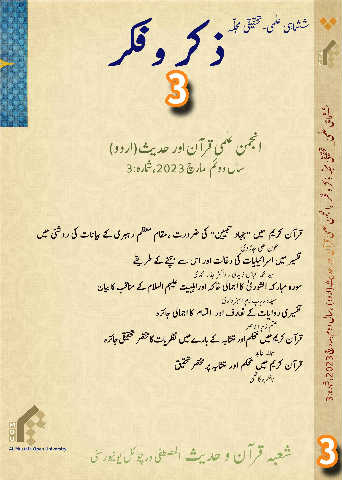 ششماہی علمی۔ تحقیقی مجلہ
ذکر و فکر
3
انجمن علمی قرآن اور حدیث (اردو)
سال دوئم، مارچ 2023، شمارہ: 3
قرآن کریم میں "جہاد تبیین" کی ضرورت، مقام معظم رہبری کے بیانات کی روشنی میں
تفسیر میں اسرائیلیات کی دخالت اور اس سے بچنے کے طریقے
سورہ مبارکہ الشوریٰ کا اجمالی خاکہ اور اہلبیت علیہم السلام کے مناقب کا بیان
تفسیری روایات کے تعارف اور اقسام کا اجمالی جائزہ
قرآن کریم میں محکم اور متشابہ کے بارے میں نظریات کا مختصر تحقیقی جائزہ
قرآن کریم میں محکم اور متشابہ پر مختصر تحقیق
شعبہ قرآن و حدیث المصطفیٰ ورچوئل یونیورسٹی
Al-Mustafa Open University
3